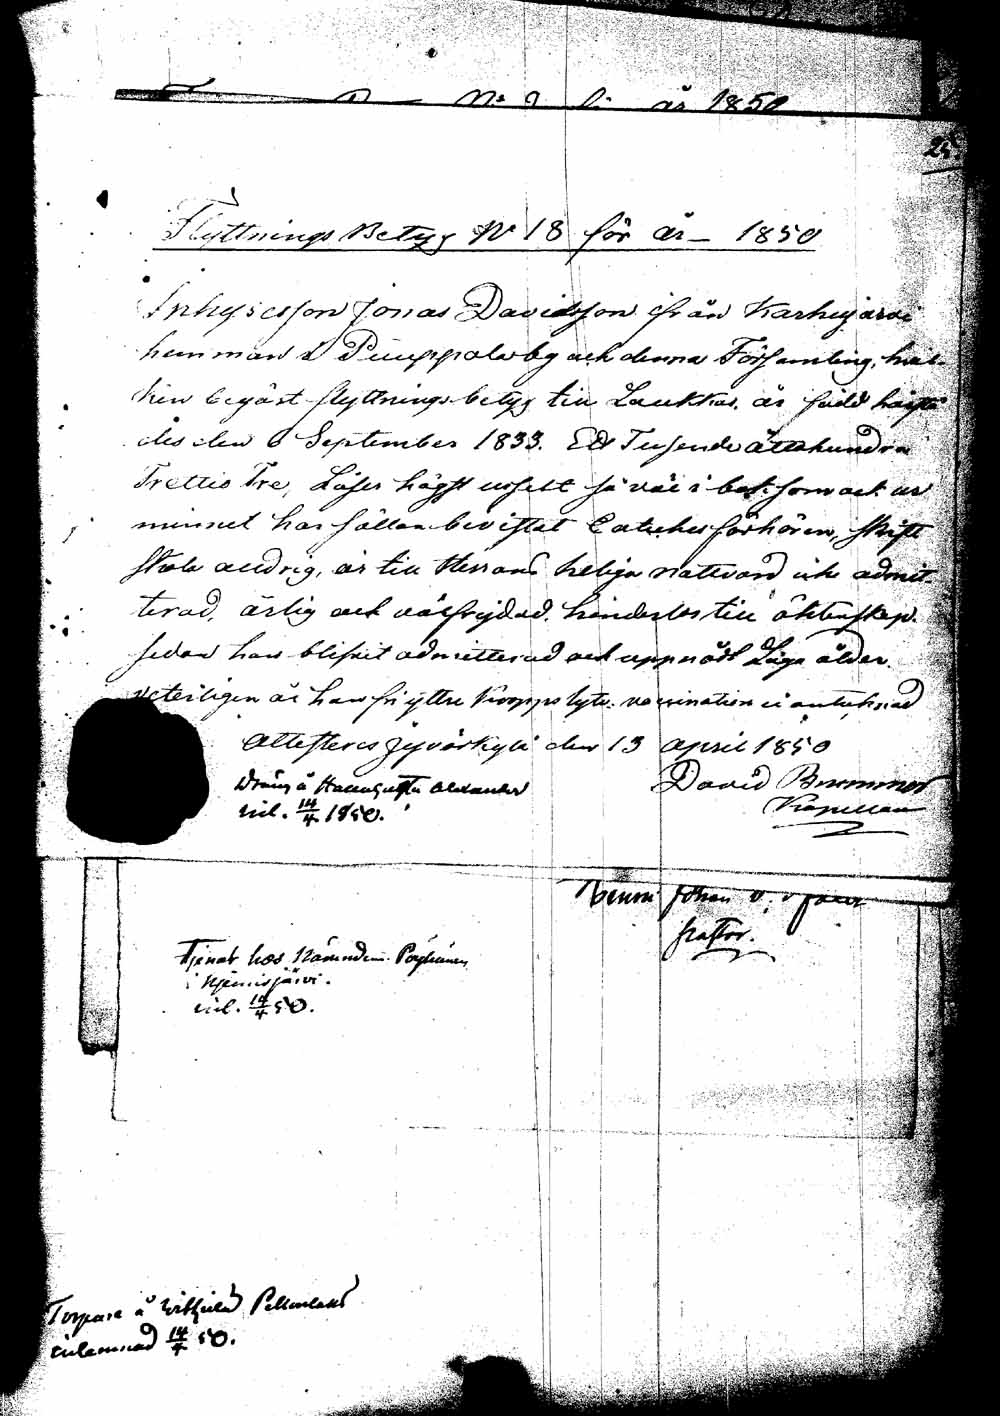 år 1850
24.
Flyttnings Betyg No 18 för år 1850
Inhysesson Jonas Davidsson ifrån Karhujärvi
hemman i Puuppola by och denna Församling, hvil-
ken begärt flyttningsbetyg till Laukkas, är född härstä
des den 6 September 1833. Ett Tusende åttahundra
Trettio Tre, Läser högst uselt så väl i bok som ock ur
minnet har sällan bevistat Catechesförhören, skrift
skola aldrig, är till Herrans heliga nattvard icke admit-
terad, ärlig och välfrejdad, hinderlös till äktenskap.
sedan han blifvit admitterad och uppnådt Laga ålder.
veterligen är han fri yttre kropps lyte. vaccination ei antecknad
Attesteras Jyväskylä den 13 april 1850
David Brummer
Kapellan
Dräng å Alexander
inl. 14/4 1850.
Johan
Pastor.
Tjenat hos Pöyhönen
i Kynnisjärvi.
inl. 14/4 50.
Torpare å
inlemnad 14/4 50.